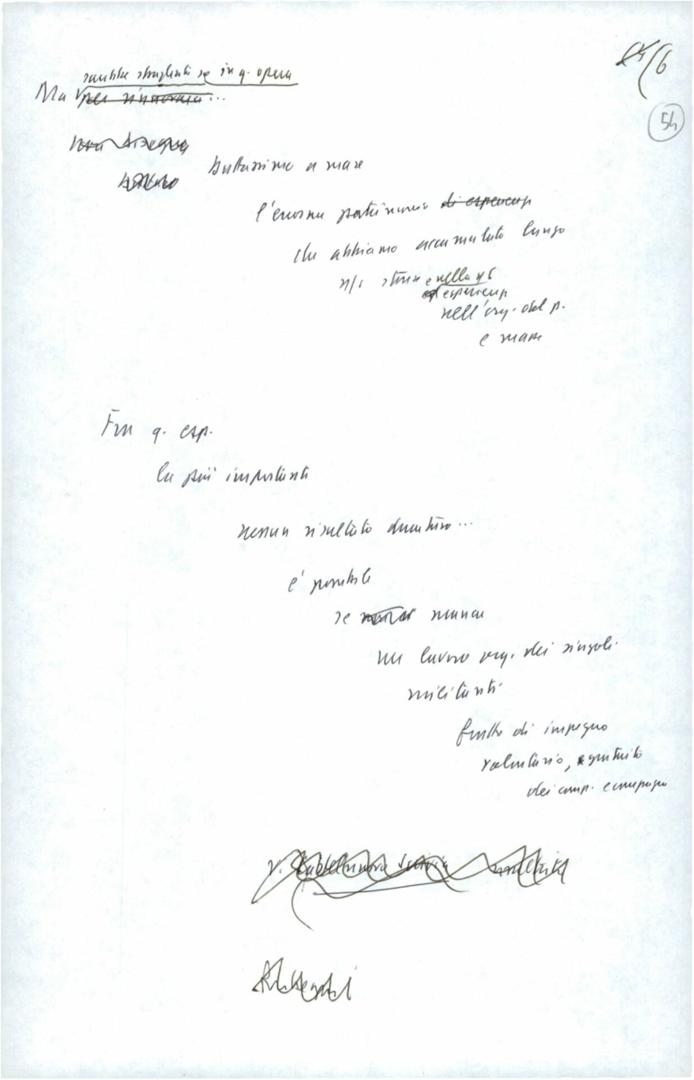 6
54
sarebbe sbagliato se in q. opera
Ma per rinnovarci...
buttassimo a mare
l'enorme patrimonio di esperienze
che abbiamo accumulato lungo
n/s storia e nella ns
esperienza
nell'org. del p.
e mare
Fra q. esp.
la più importante
nessun risultato duraturo...
è possibile
se manca
un lavoro org. dei singoli
militanti
frutto di impegno
volontario, gratuito
dei comp. e compagne